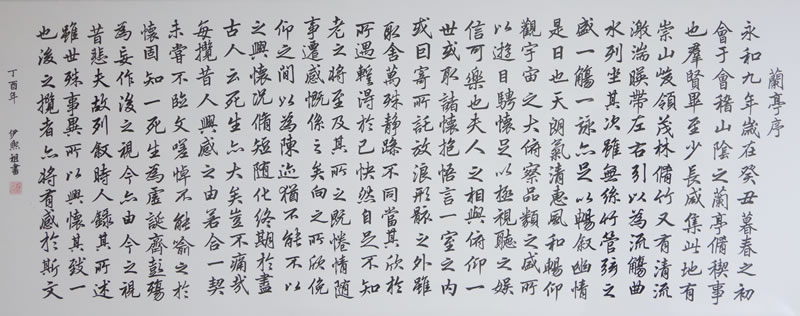 蘭亭序
永和九年歲在癸丑暮春之初
會于會稽山陰之蘭亭脩稧事
也群賢畢至少長咸集此地有
崇山峻領茂林脩竹又有清流
激湍暎帶左右引以為流觴曲
水列坐其次雖無絲竹管弦之
盛一觴一詠亦足以暢叙幽情
是日也天朗氣清惠風和暢仰
觀宇宙之大俯察品類之盛所
以遊目騁懷足以極視聽之娛
信可樂也夫人之相與俯仰一
世或取諸懷抱悟言一室之內
或因寄所託放浪形骸之外雖
取舍萬殊靜躁不同當其欣於
所遇輕得於己快然自足不知
老之將至及其所之既惓情隨
事遷感慨係之矣向之所欣俛
仰之間以為陳迹猶不能不以
之興懷況脩短隨化終期於盡
古人云死生亦大矣豈不痛哉
每攬昔人興感之由若合一契
未嘗不臨文嗟悼不能喻之於
懷固知一死生為虛誕齊彭殤
為妄作後之視今亦由今之視
昔悲夫故列叙時人錄其所述
雖世殊事異所以興懷其致一
也後之攬者亦將有感於斯文
丁酉年 伊熙祖書